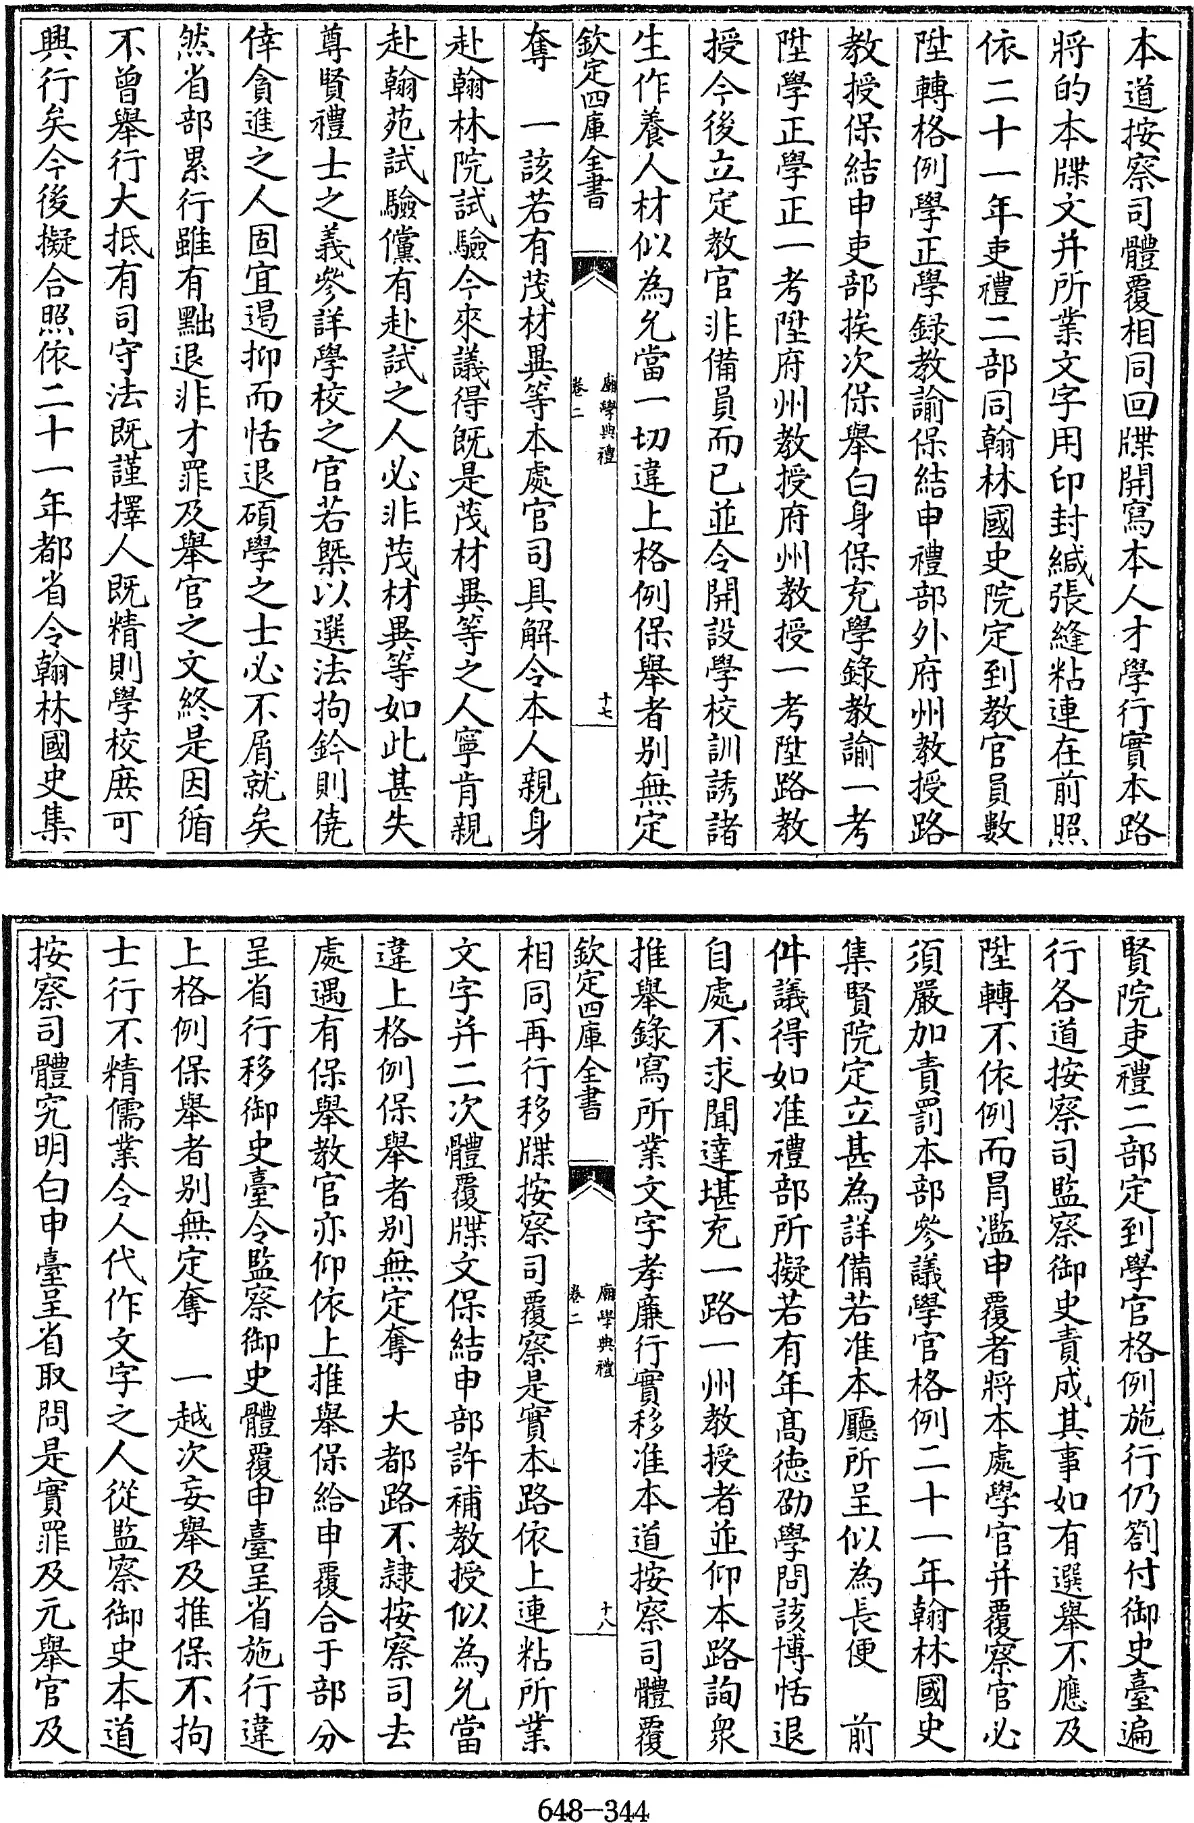 本道按察司體覆相同回牒開寫本人才學行實本路
將的本牒文并所業文字用印封緘張縫粘連在前照
依二十一年吏禮二部同翰林國史院定到教官員數
陞轉格例學正學録教諭保結申禮部外府州教授路
教授保結申吏部挨次保舉白身保充學錄教諭一考
陞學正學正一考陞府州教授府州教授一考陞路教
授今後立定教官非備員而已並令開設學校訓誘諸
生作養人材似為允當一切違上格例保舉者別無定
欽定四庫全書
廟學典禮
卷二
十七
奪　一該若有茂材異等本處官司具解令本人親身
赴翰林院試驗今來議得既是茂材異等之人寧肯親
赴翰苑試驗儻有赴試之人必非茂材異等如此甚失
尊賢禮士之義參詳學校之官若槩以選法拘鈐則僥
倖貪進之人固宜遏抑而恬退碩學之士必不屑就矣
然省部累行雖有黜退非才罪及舉官之文終是因循
不曾舉行大抵有司守法既謹擇人既精則學校庶可
興行矣今後擬合照依二十一年都省令翰林國史集
賢院吏禮二部定到學官格例施行仍劄付御史臺遍
行各道按察司監察御史責成其事如有選舉不應及
陞轉不依例而冐濫申覆者將本處學官并覆察官必
須嚴加責罰本部參議學官格例二十一年翰林國史
集賢院定立甚為詳備若准本廳所呈似為長便　前
件議得如准禮部所擬若有年髙徳劭學問該博恬退
自處不求聞達堪充一路一州教授者並仰本路詢衆
推舉錄寫所業文字孝廉行實移准本道按察司體覆
欽定四庫全書
廟學典禮
卷二
十八
相同再行移牒按察司覆察是實本路依上連粘所業
文字并二次體覆牒文保結申部許補教授似為允當
違上格例保舉者別無定奪　大都路不隸按察司去
處遇有保舉教官亦仰依上推舉保給申覆合于部分
呈省行移御史臺令監察御史體覆申臺呈省施行違
上格例保舉者別無定奪　一越次妄舉及推保不拘
士行不精儒業令人代作文字之人從監察御史本道
按察司體究明白申臺呈省取問是實罪及元舉官及
648-344